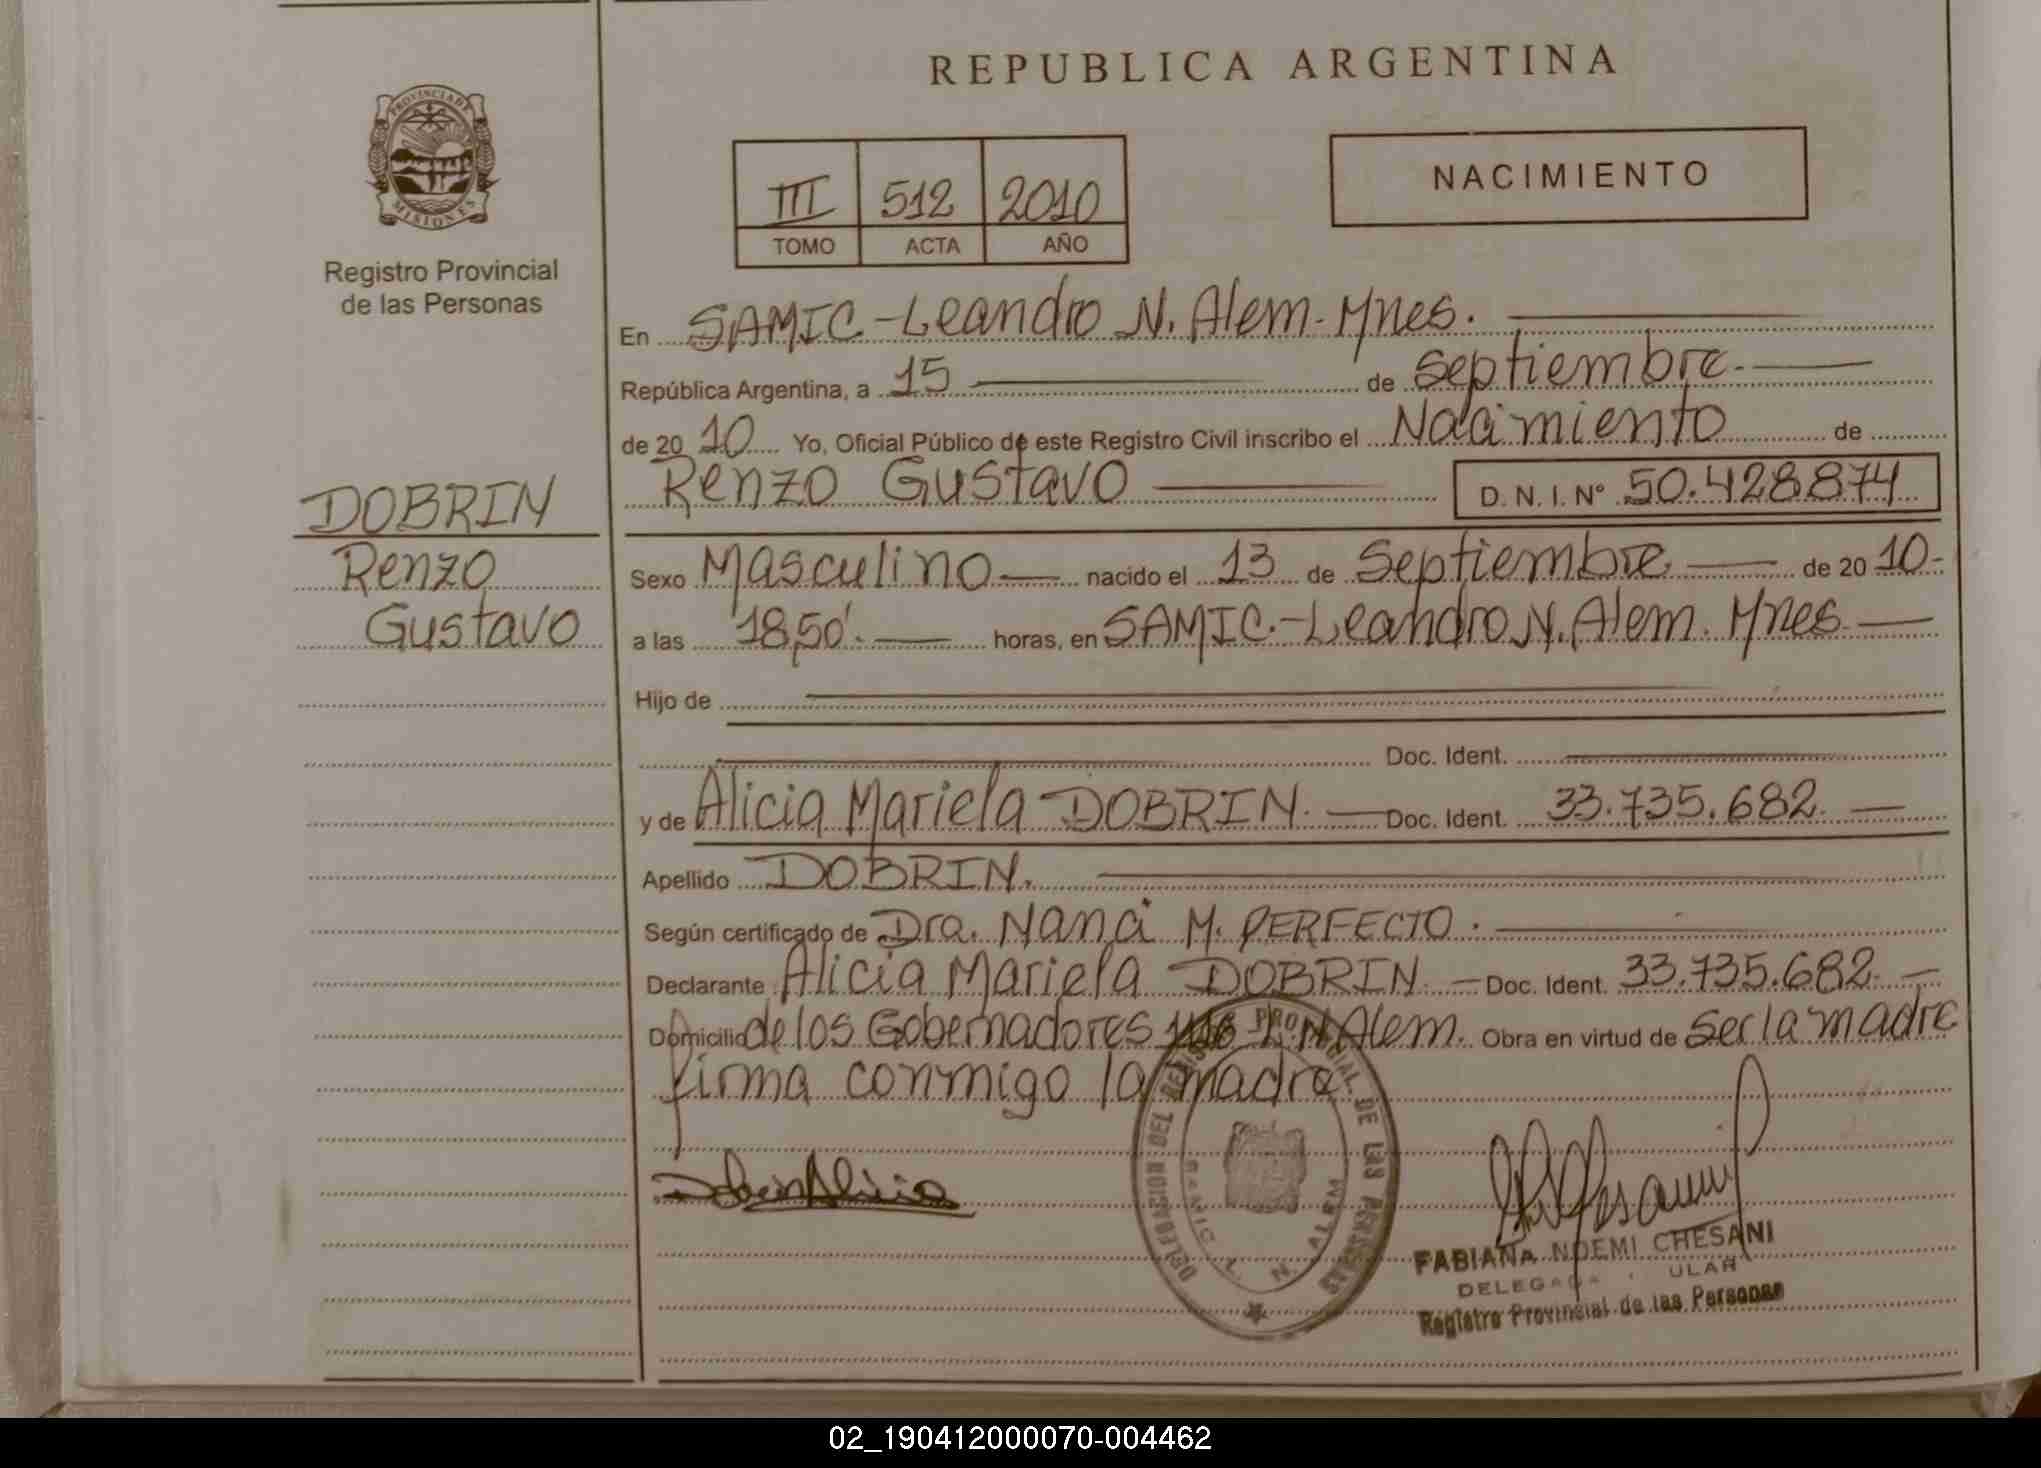 REPUBLICA ARGENTINA
PROVINCIA DE
MISIONES
Registro Provincial
de las Personas
III 512 2010
TOMO ACTA AÑO
NACIMIENTO
En SAMIC-Leandro N. Alem-Mnes.
República Argentina, a 15 de septiembre.
de 2010 Yo, Oficial Público de este Registro Civil inscribo el Nacimiento de
Renzo Gustavo D. N. I. Nº 50.428874
DOBRIN
Renzo
Gustavo
Sexo Masculino nacido el 13 de Septiembre de 2010-
a las 18,50'. horas, en SAMIC.-Leandro N. Alem. Mnes
Hijo de
Doc. Ident.
y de Alicia Mariela DOBRIN. Doc. Ident. 33.735.682.
Apellido DOBRIN.
Según certificado de Dra. Nanci M. PERFECTO.
Declarante Alicia Mariela DOBRIN Doc. Ident. 33.735.682.
Domicilio de los Gobernadores L. N. Alem. Obra en virtud de Ser la madre
firma conmigo la madre
Dobrin Alicia
DELEGACION DEL REGISTRO PROVINCIAL DE LAS PERSONAS
SAMIC L. N. ALEM
FABIANA NOEMI CHESANI
Registro Provincial de las Personas
02_190412000070-004462